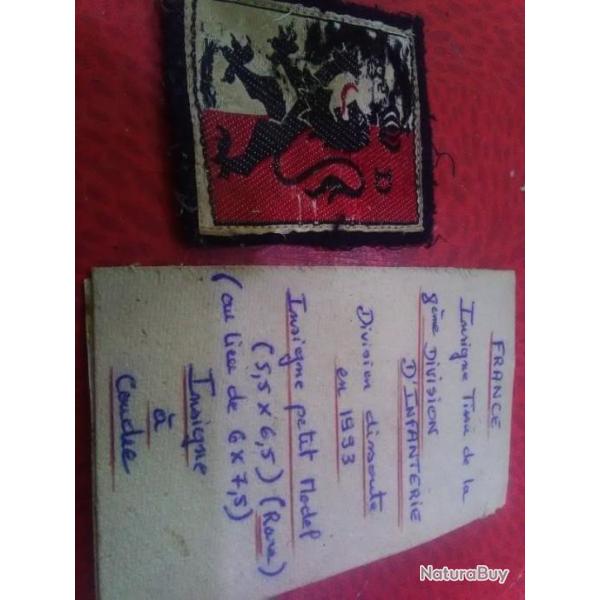 FRANCE
Insigne Tissu de la
8ème DIVISION
D'INFANTERIE
Division dissoute
en 1993
Insigne petit Model
(5,5 x 6,5) (Rare)
(au lieu de 6 x 7,5)
Insigne
à
Coudre
NaturaBuy